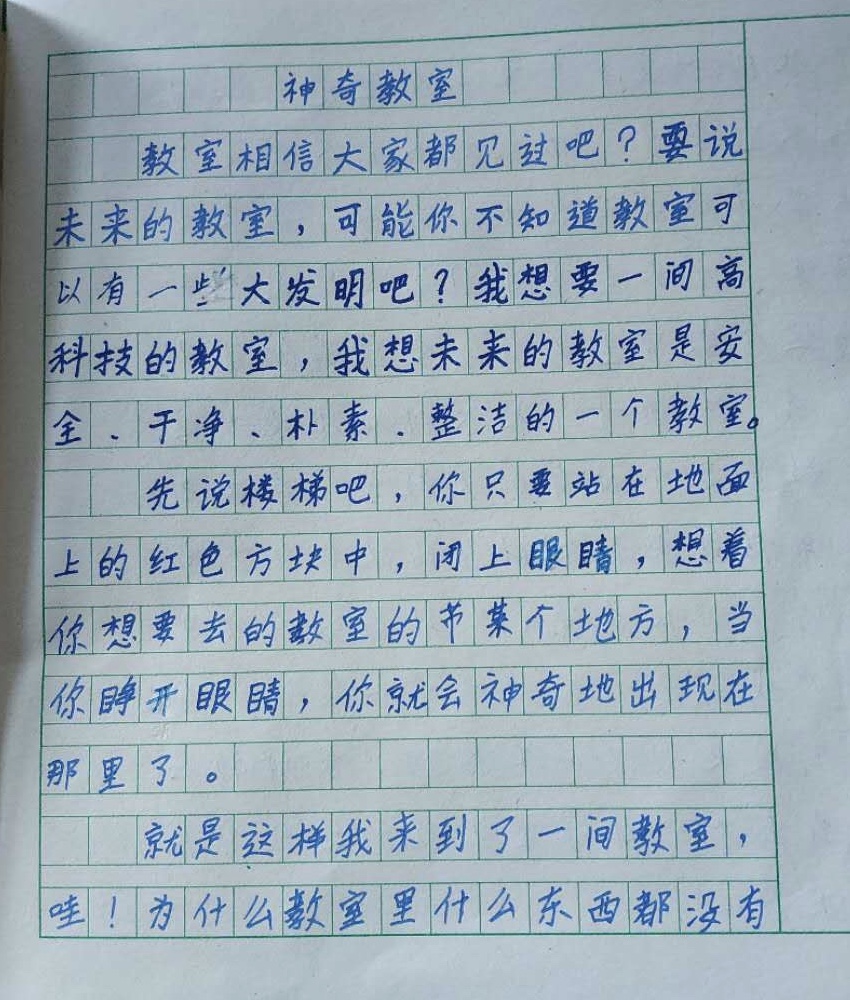 神奇教室
教室相信大家都见过吧？要说
未来的教室，可能你不知道教室可
以有一些大发明吧？我想要一间高
科技的教室，我想未来的教室是安
全、干净、朴素、整洁的一个教室。
先说楼梯吧，你只要站在地面
上的红色方块中，闭上眼睛，想着
你想要去的教室的节某个地方，当
你睁开眼睛，你就会神奇地出现在
那里了。
就是这样我来到了一间教室，
哇！为什么教室里什么东西都没有